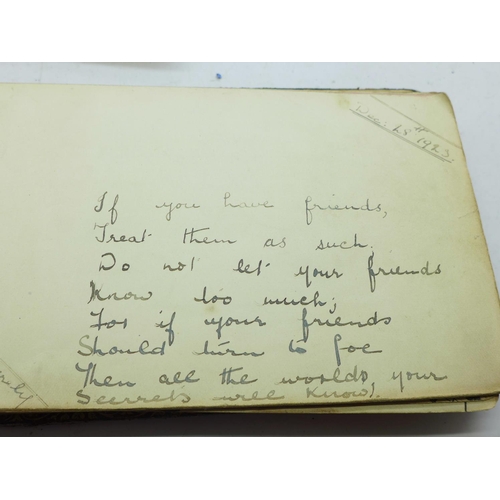 25th 1923.
If you have friends,
Treat them as such.
Do not let your friends
Know too much;
For if your friends
Should turn to foe
Then all the worlds, your
Seerrets will know!